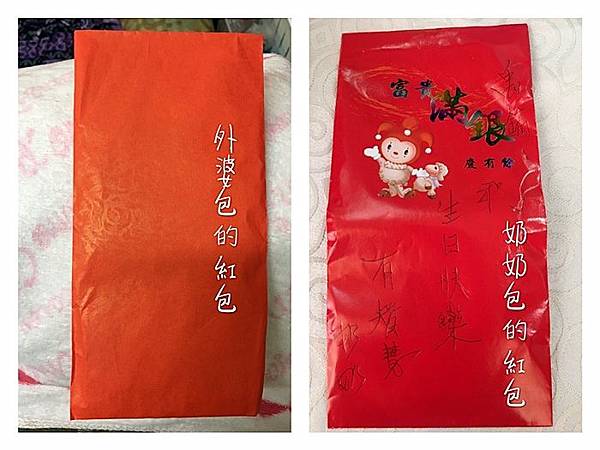 外婆包的紅包
富貴
滿銀
慶有餘
生日快樂
有智慧
奶奶
奶奶包的紅包